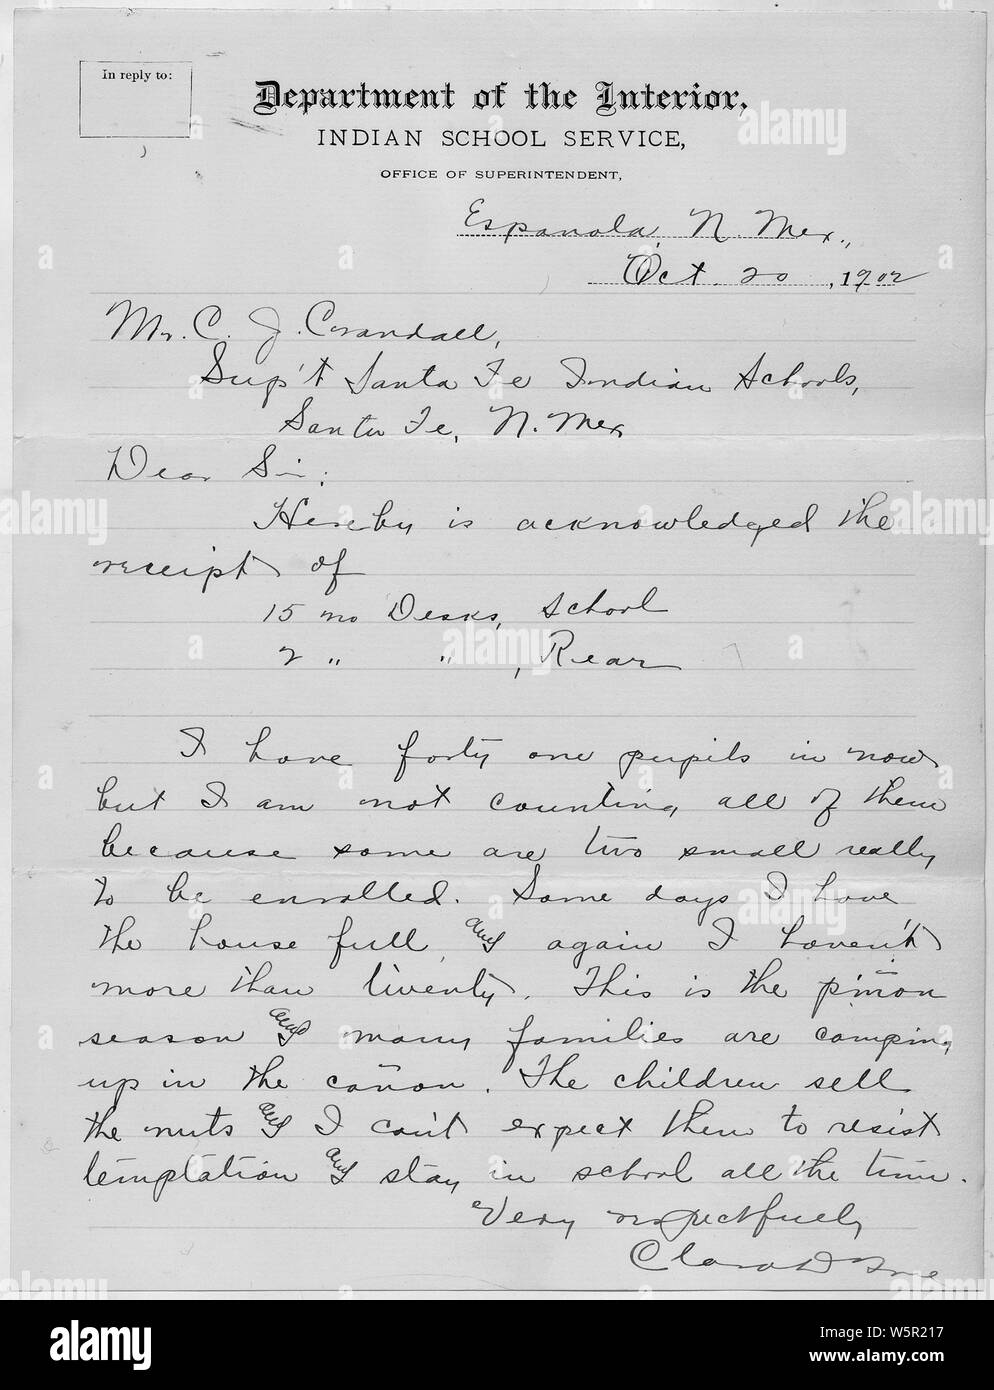 In reply to:
Department of the Interior,
INDIAN SCHOOL SERVICE,
OFFICE OF SUPERINTENDENT,
Espanola, N. Mex.,
Oct. 20, 1902
Mr. C. J. Crandall,
Sup't Santa Fe Indian Schools,
Santa Fe, N. Mex
Dear Sir:
Hereby is acknowledged the
receipt of
15 no Desks, School
2 " " , Rear
I have forty one pupils in now
but I am not counting all of them
because some are two small really
to be enrolled. Some days I have
the house full, and again I haven't
more than twenty. This is the piñon
season and many families are camping
up in the cañon. The children sell
the nuts and I can't expect them to resist
temptation and stay in school all the time.
Very respectfully
Clara D. True
alamy
Image ID: W5R217
www.alamy.com